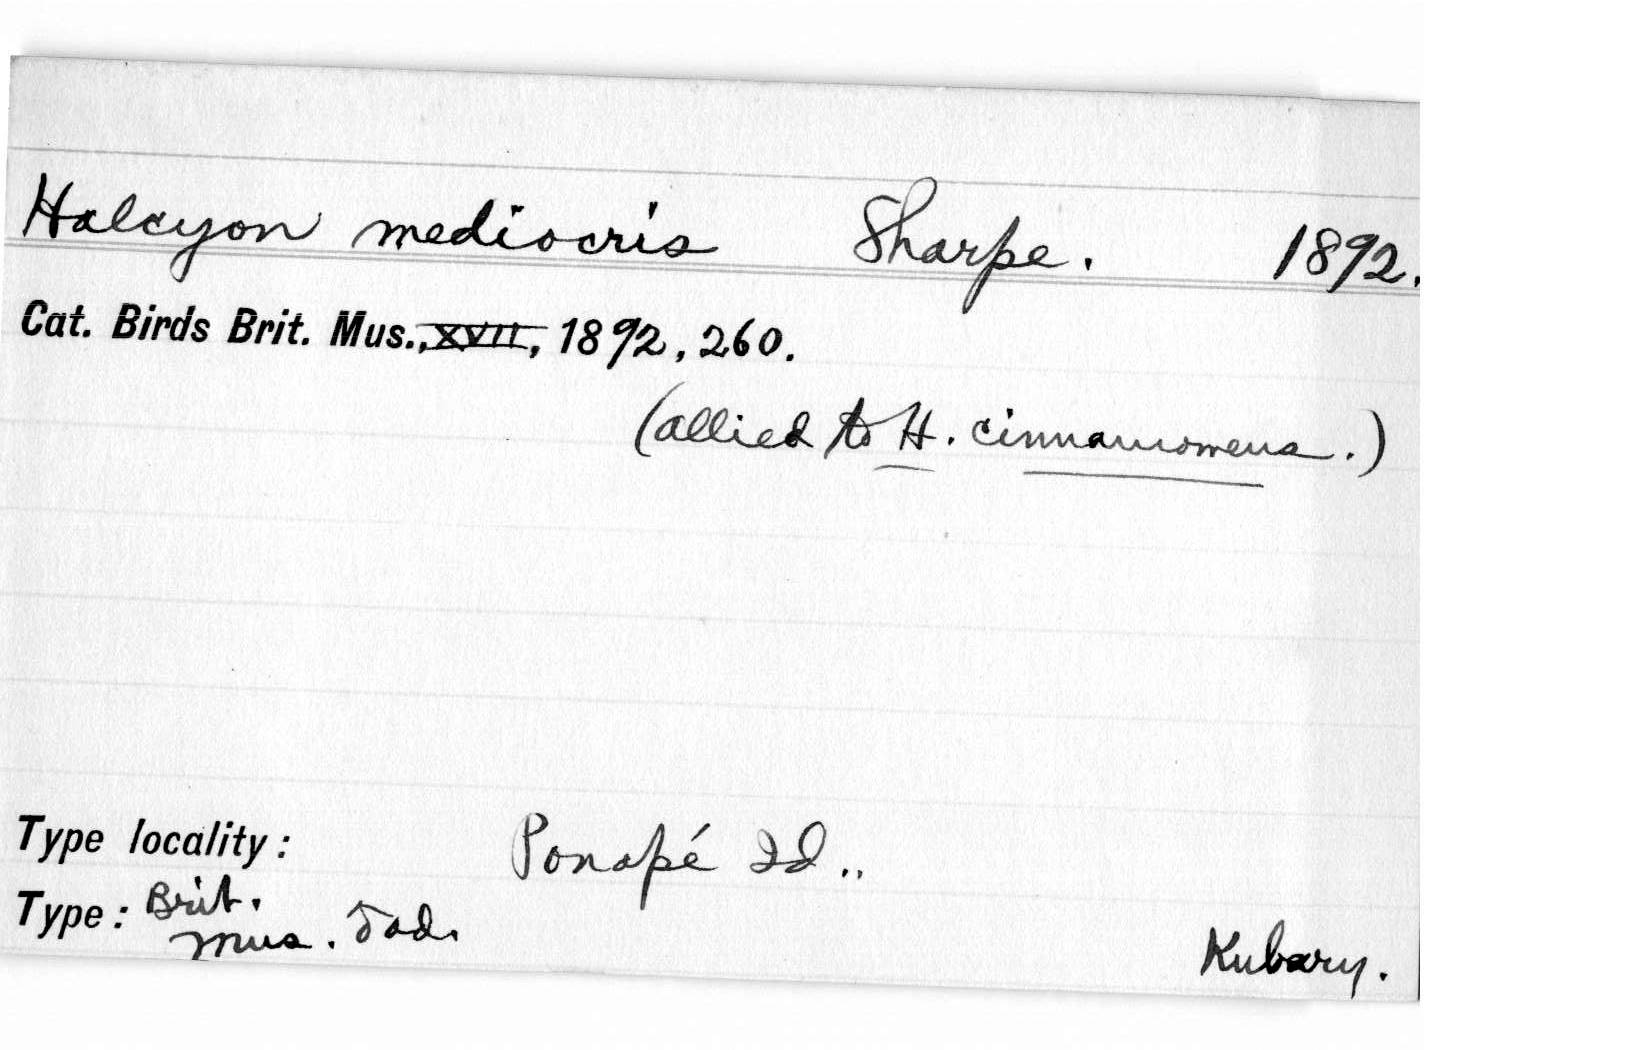 Halcyon mediocris Sharpe. 1892.
Cat. Birds Brit. Mus., XVII, 1892, 260.
(allied to H. cinnamomena.)
Type locality: Ponapé Id..
Type: Brit.
Mus. ♂ad.
Kubary.